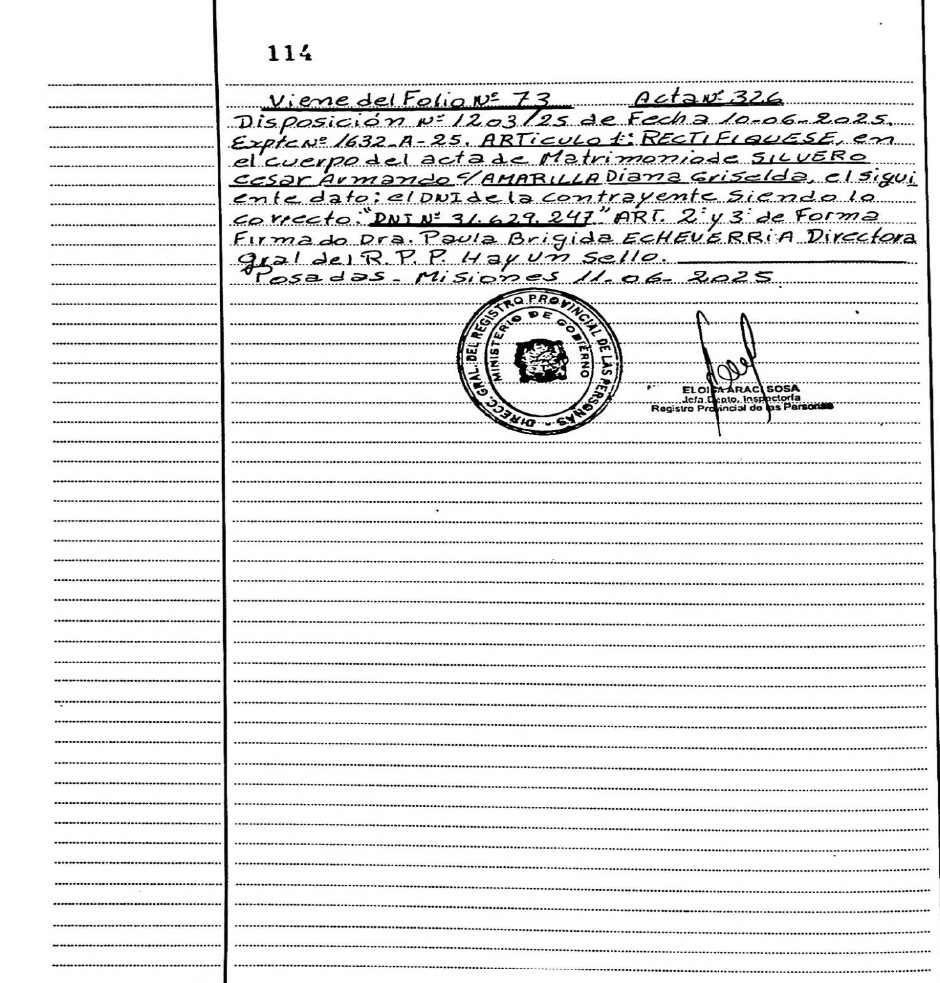 114
Viene del Folio Nº 73 Acta Nº 326
Disposición Nº 1203/25 de Fecha 10-06-2025.
Expte Nº 1632-A-25. ARTiculo 1: RECTIFIQUESE, en
el cuerpo del acta de Matrimonio de SILVERO
Cesar Armando c/ AMARILLA Diana Griselda, el sigui
ente dato: el DNI de la contrayente Siendo lo
correcto: "DNI Nº 31.629.247." ART. 2º y 3º de Forma
Firmado Dra. Paula Brigida ECHEVERRiA Directora
Gral del R. P. P. Hay un sello.
Posadas - Misiones 11-06-2025
DIRECC. GRAL. DEL REGISTRO PROVINCIAL DE LAS PERSONAS -
MINISTERIO DE GOBIERNO
ELOISA ARACI SOSA
Jefa Depto. Inspectoría
Registro Provincial de las Personas